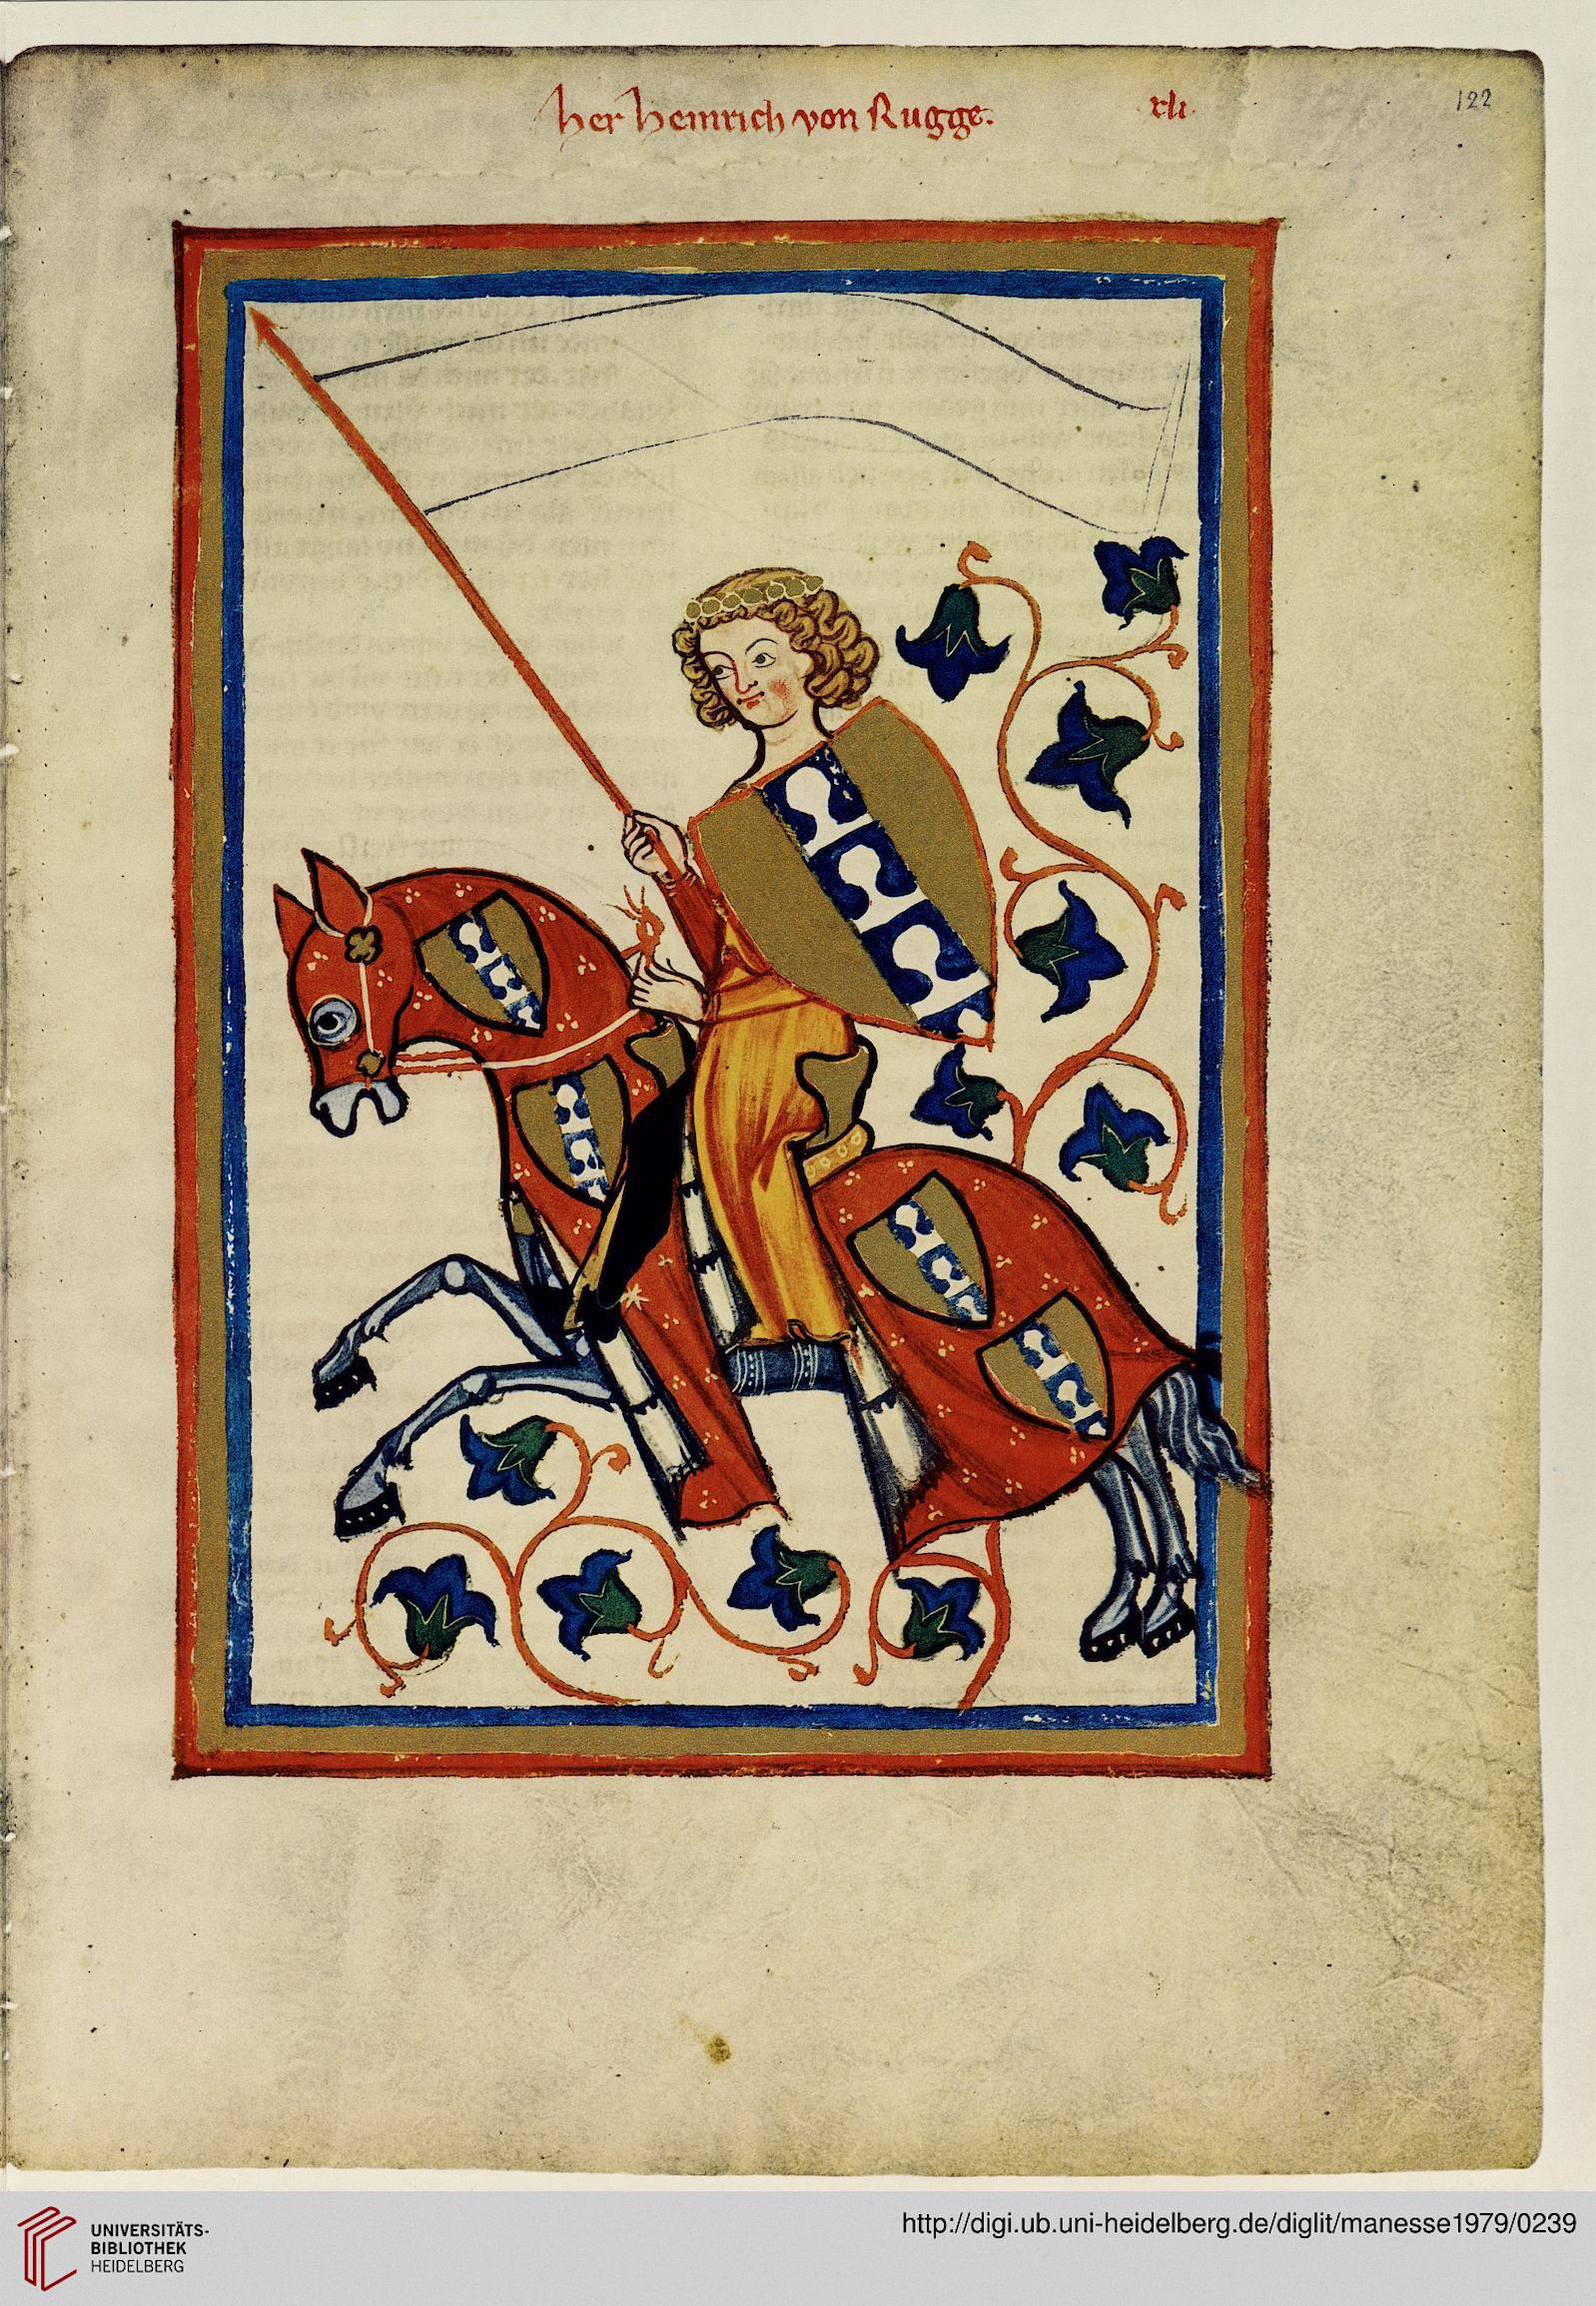 her Heinrich von Rugge.
xli.
122
UNIVERSITÄTS-
BIBLIOTHEK
HEIDELBERG
http://digi.ub.uni-heidelberg.de/diglit/manesse1979/0239